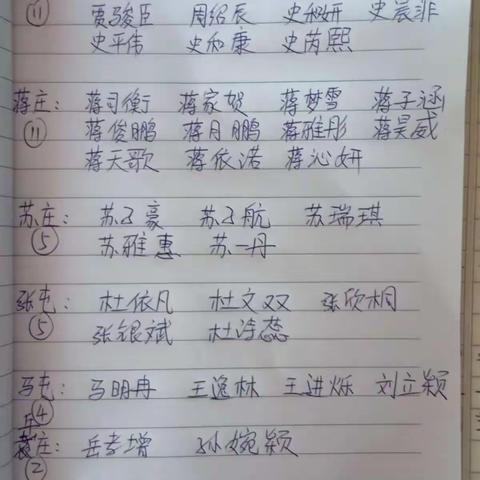 ⑪ 贾骏臣 周绍辰 史和妍 史晨菲
史平伟 史和康 史芮熙
蒋庄: 蒋司衡 蒋家贺 蒋梦雪 蒋子涵
⑪ 蒋俊鹏 蒋月鹏 蒋雅彤 蒋昊威
蒋天歌 蒋依诺 蒋沁妍
苏庄: 苏子豪 苏子航 苏瑞琪
⑤ 苏雅惠 苏一丹
张屯: 杜依凡 杜文双 张欣桐
⑤ 张银斌 杜诗蕊
马屯: 马明冉 王逸林 王进烁 刘立颖
④
庄: 岳孝增 孙婉颖
②